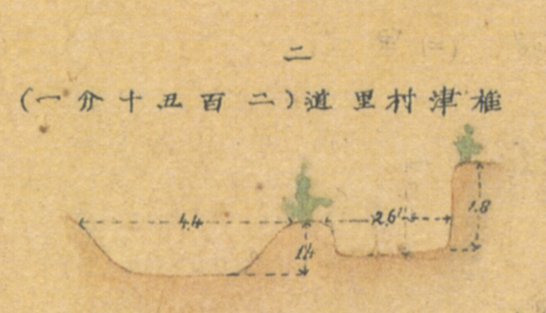 二
椎津村里道(二百五十分一)
4.4
2.6
1.8